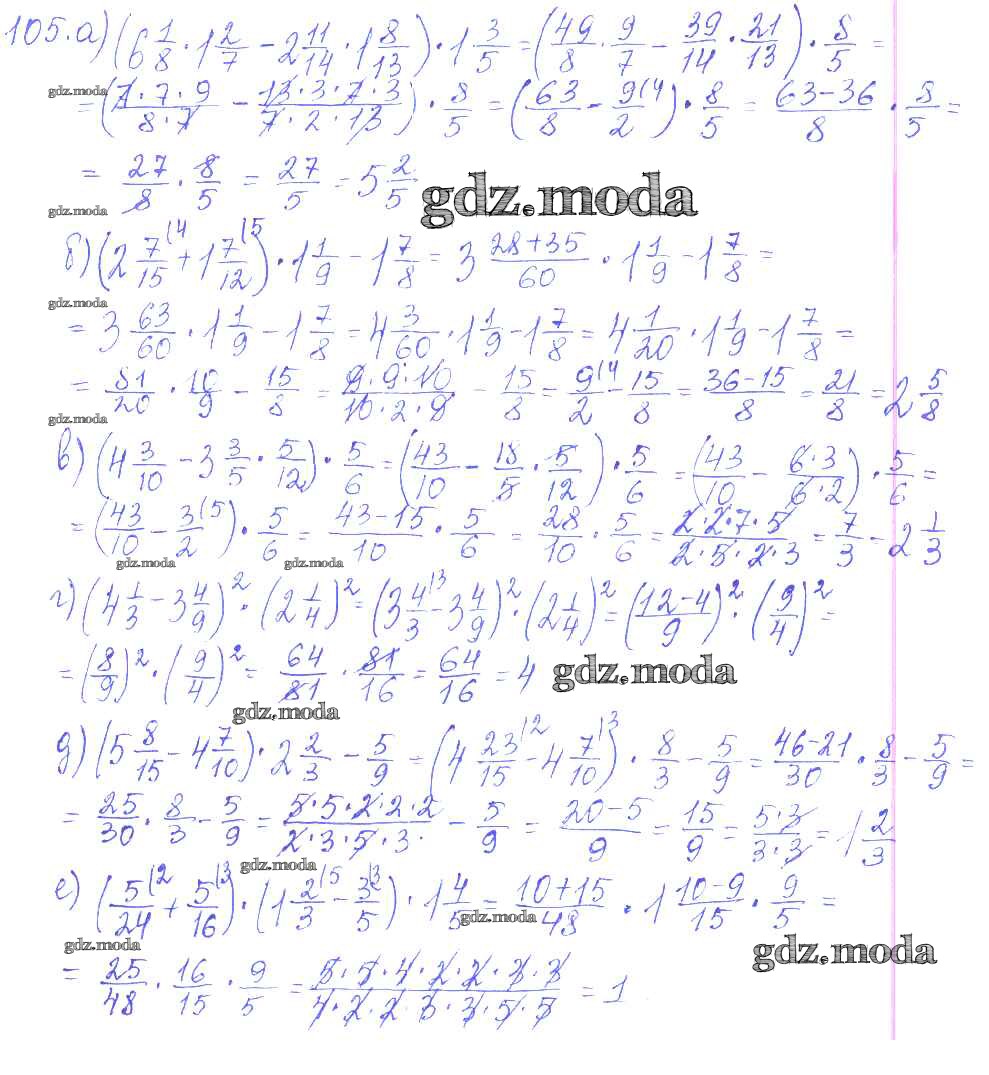 105.а) (6 1/8 · 1 2/7 − 2 11/14 · 1 8/13) · 1 3/5 = (49/8 · 9/7 − 39/14 · 21/13) · 8/5 =
gdz.moda
= (7·7·9/8·7 − 13·3·7·3/7·2·13) · 8/5 = (63/8 − 9/2 (4) · 8/5 = 63−36/8 · 8/5 =
= 27/8 · 8/5 = 27/5 = 5 2/5
gdz.moda
gdz.moda
б) (2 7/15 (4 + 1 7/12 (5) · 1 1/9 − 1 7/8 = 3 28+35/60 · 1 1/9 − 1 7/8 =
gdz.moda
= 3 63/60 · 1 1/9 − 1 7/8 = 4 3/60 · 1 1/9 − 1 7/8 = 4 1/20 · 1 1/9 − 1 7/8 =
= 81/20 · 10/9 − 15/8 = 9·9·10/10·2·9 − 15/8 = 9/2 (4 − 15/8 = 36−15/8 = 21/8 = 2 5/8
gdz.moda
в) (4 3/10 − 3 3/5 · 5/12) · 5/6 = (43/10 − 18/5 · 5/12) · 5/6 = (43/10 − 6·3/6·2) · 5/6 =
= (43/10 − 3/2 (5) · 5/6 = 43−15/10 · 5/6 = 28/10 · 5/6 = 2·2·7·5/2·5·2·3 = 7/3 = 2 1/3
gdz.moda gdz.moda
г) (4 1/3 − 3 4/9)² · (2 1/4)² = (3 4/3 (3 − 3 4/9)² · (2 1/4)² = (12−4/9)² · (9/4)² =
= (8/9)² · (9/4)² = 64/81 · 81/16 = 64/16 = 4
gdz.moda
gdz.moda
д) (5 8/15 − 4 7/10) · 2 2/3 − 5/9 = (4 23/15 (2 − 4 7/10 (3) · 8/3 − 5/9 = 46−21/30 · 8/3 − 5/9 =
= 25/30 · 8/3 − 5/9 = 5·5·2·2·2/2·3·5·3 − 5/9 = 20−5/9 = 15/9 = 5·3/3·3 = 1 2/3
gdz.moda
е) (5/24 (2 + 5/16 (3) · (1 2/3 (5 − 3/5 (3) · 1 4/5 = 10+15/48 · 1 10−9/15 · 9/5 =
gdz.moda
gdz.moda
gdz.moda
= 25/48 · 16/15 · 9/5 = 5·5·4·2·2·3·3/4·2·2·3·3·5·5 = 1